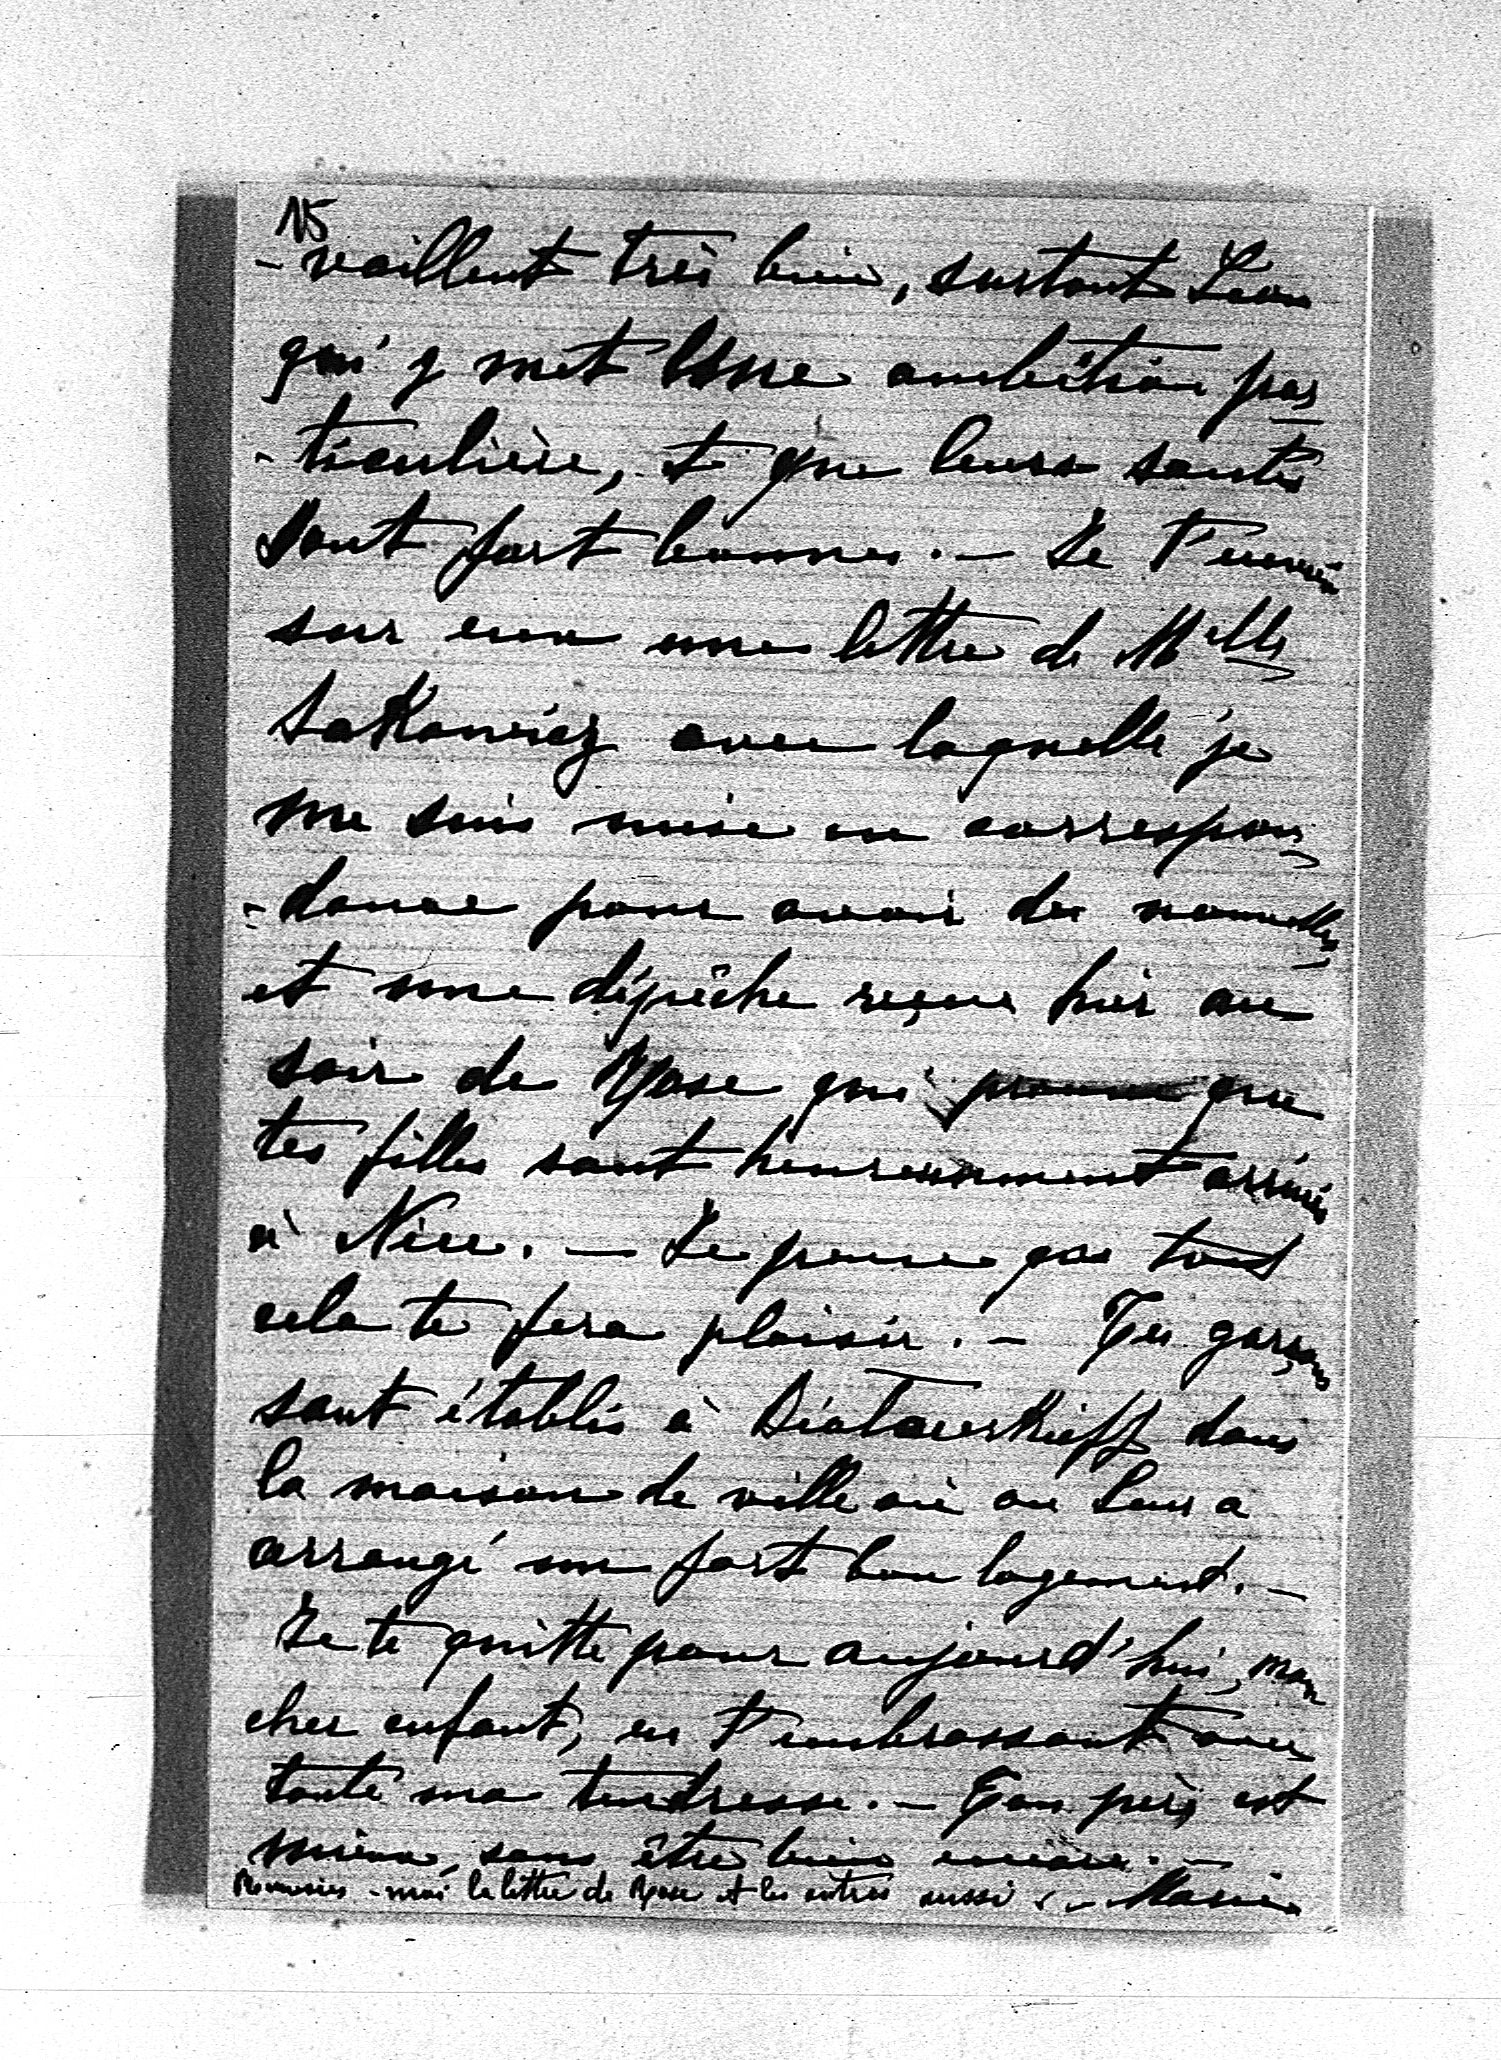 15
- vaillent très bien, surtout Léon
qui y met une ambition par
- ticulière, et que leurs santés
sont fort bonnes. — Je t'envoie
sur eux une lettre de Melle
Sakowicz avec laquelle je
me suis mise en correspon
- dance pour avoir des nouvelles
et une dépêche reçue hier au
soir de Rose qui prouve que
tes filles sont heureusement arrivées
à Nice. — Je pense que tout
cela te fera plaisir. — Tes garçons
sont établis à Biatacerkieff dans
la maison de ville où on leur a
arrangé un fort bon logement. —
Je te quitte pour aujourd'hui, mon
cher enfant, en t'embrassant avec
toute ma tendresse. — Ton père est
mieux, sans être bien encore. —
Renvoies-moi la lettre de Rose et les autres aussi. — Marie